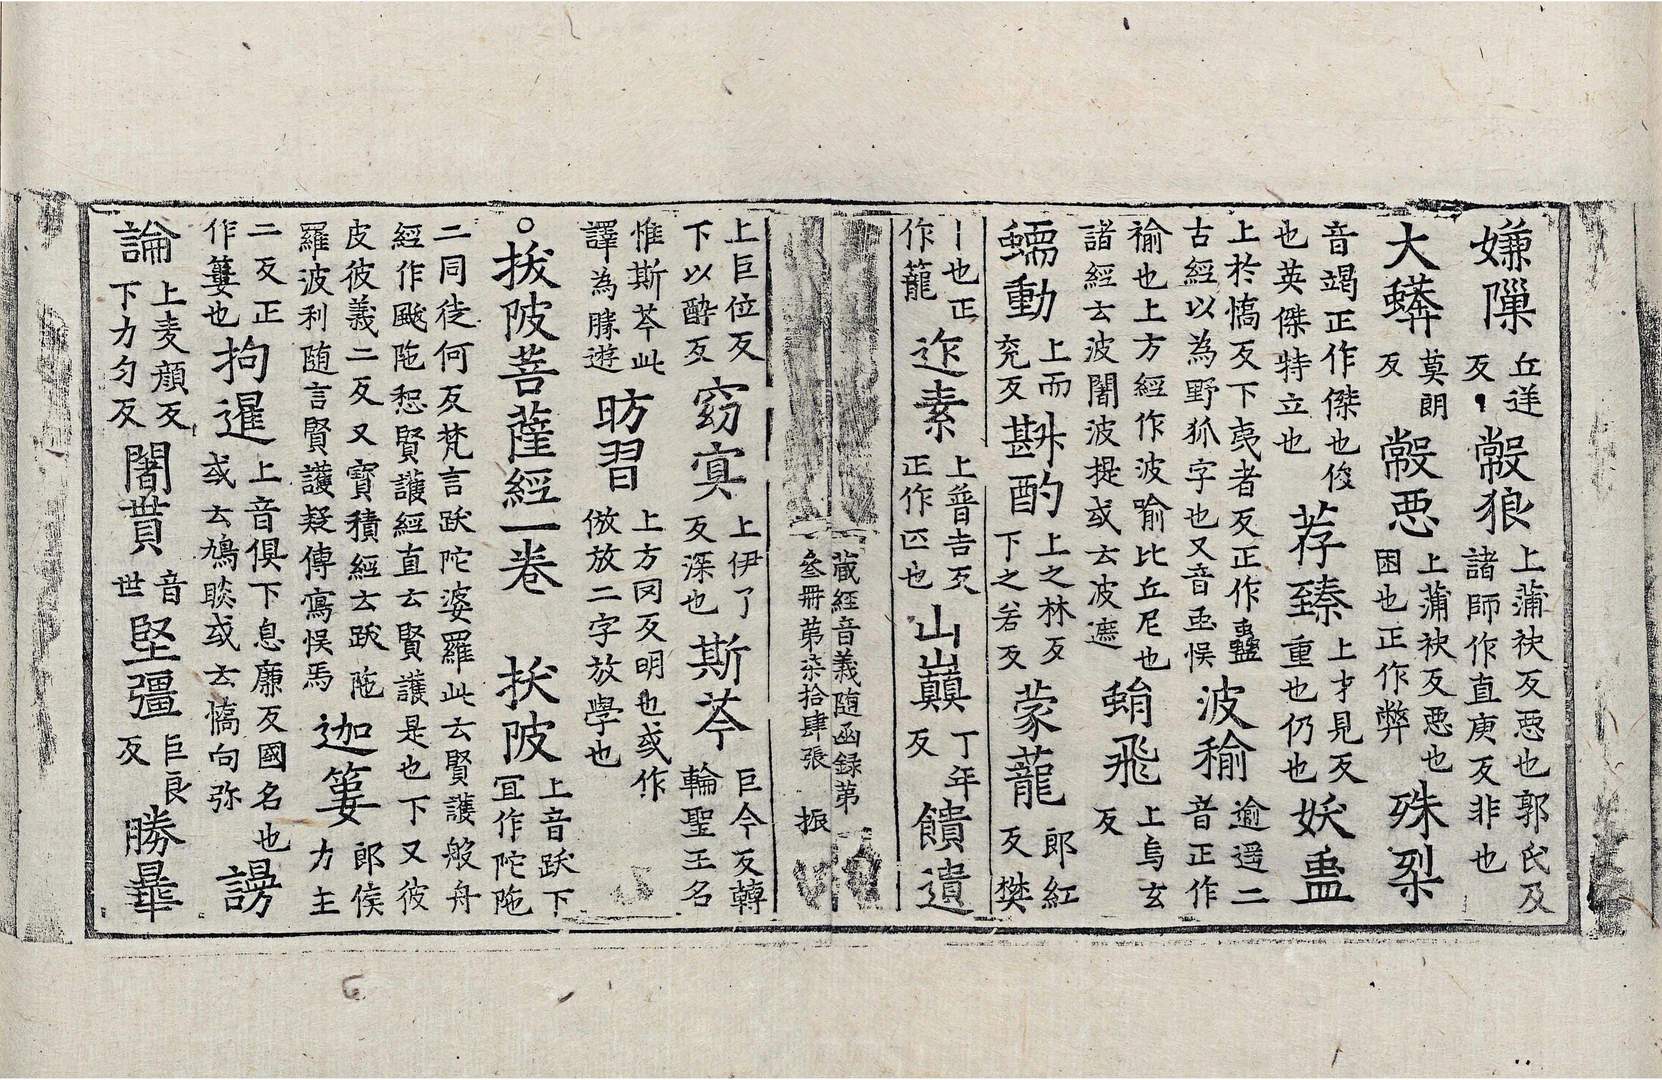 嫌隟丘逆反㡀狼上蒲袂反惡也郭氏及諸師作直庚反非也
大蟒莫朗反㡀惡上蒲袂反惡也困也正作弊殊梨
音竭正作傑也俊也英傑特立也荐臻上才見反重也仍也妖蛊
上於憍反下夷者反正作蠱古經以為野狐字也又音䖝悮波䅹逾遥二音正作
褕也上方經作波喻比丘尼也諸經云波闍波提或云波遮蜎飛上烏玄反
蠕動上而兖反斟酌上之林反下之若反蒙蘢郎紅反樊
丨也正作籠迮素上普吉反正作匹也山巔丁年反饋遺
藏經音義随函録第
叁冊第柒拾肆張 振
上巨位反下以醉反窈冥上伊了反深也斯芩巨今反轉輪聖王名
惟斯芩此譯為勝遊昉習上方罔反明也或作倣放二字放學也
○拔陂菩薩經一卷 拔陂上音跋下冝作陀陁
二同徒何反梵言跋陀婆羅此云賢護般舟經作颰陁惒賢護經直云賢護是也下又彼
皮彼義二反又寶積經云跋陁羅波利随言賢護疑傳寫悮焉迦簍郎侯力主
二反正作簍也拘暹上音俱下息廉反國名也或云鳩睒或云憍向弥謾
論上麦顔反下力勻反闍貰音世堅彊巨良反勝暈